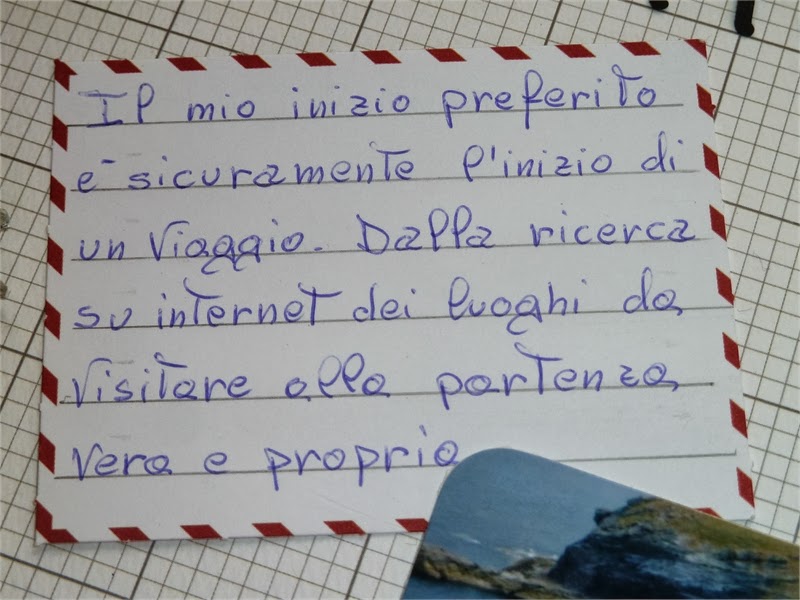 Il mio inizio preferito
è sicuramente l'inizio di
un viaggio. Dalla ricerca
su internet dei luoghi da
visitare alla partenza
vera e propria